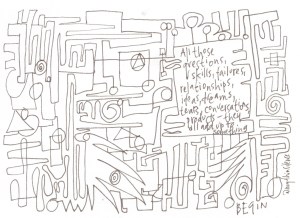 All these
questions,
skills, failures,
relationships,
ideas, dreams,
tears, conversations,
products - they
all add up to
something.
BEGIN